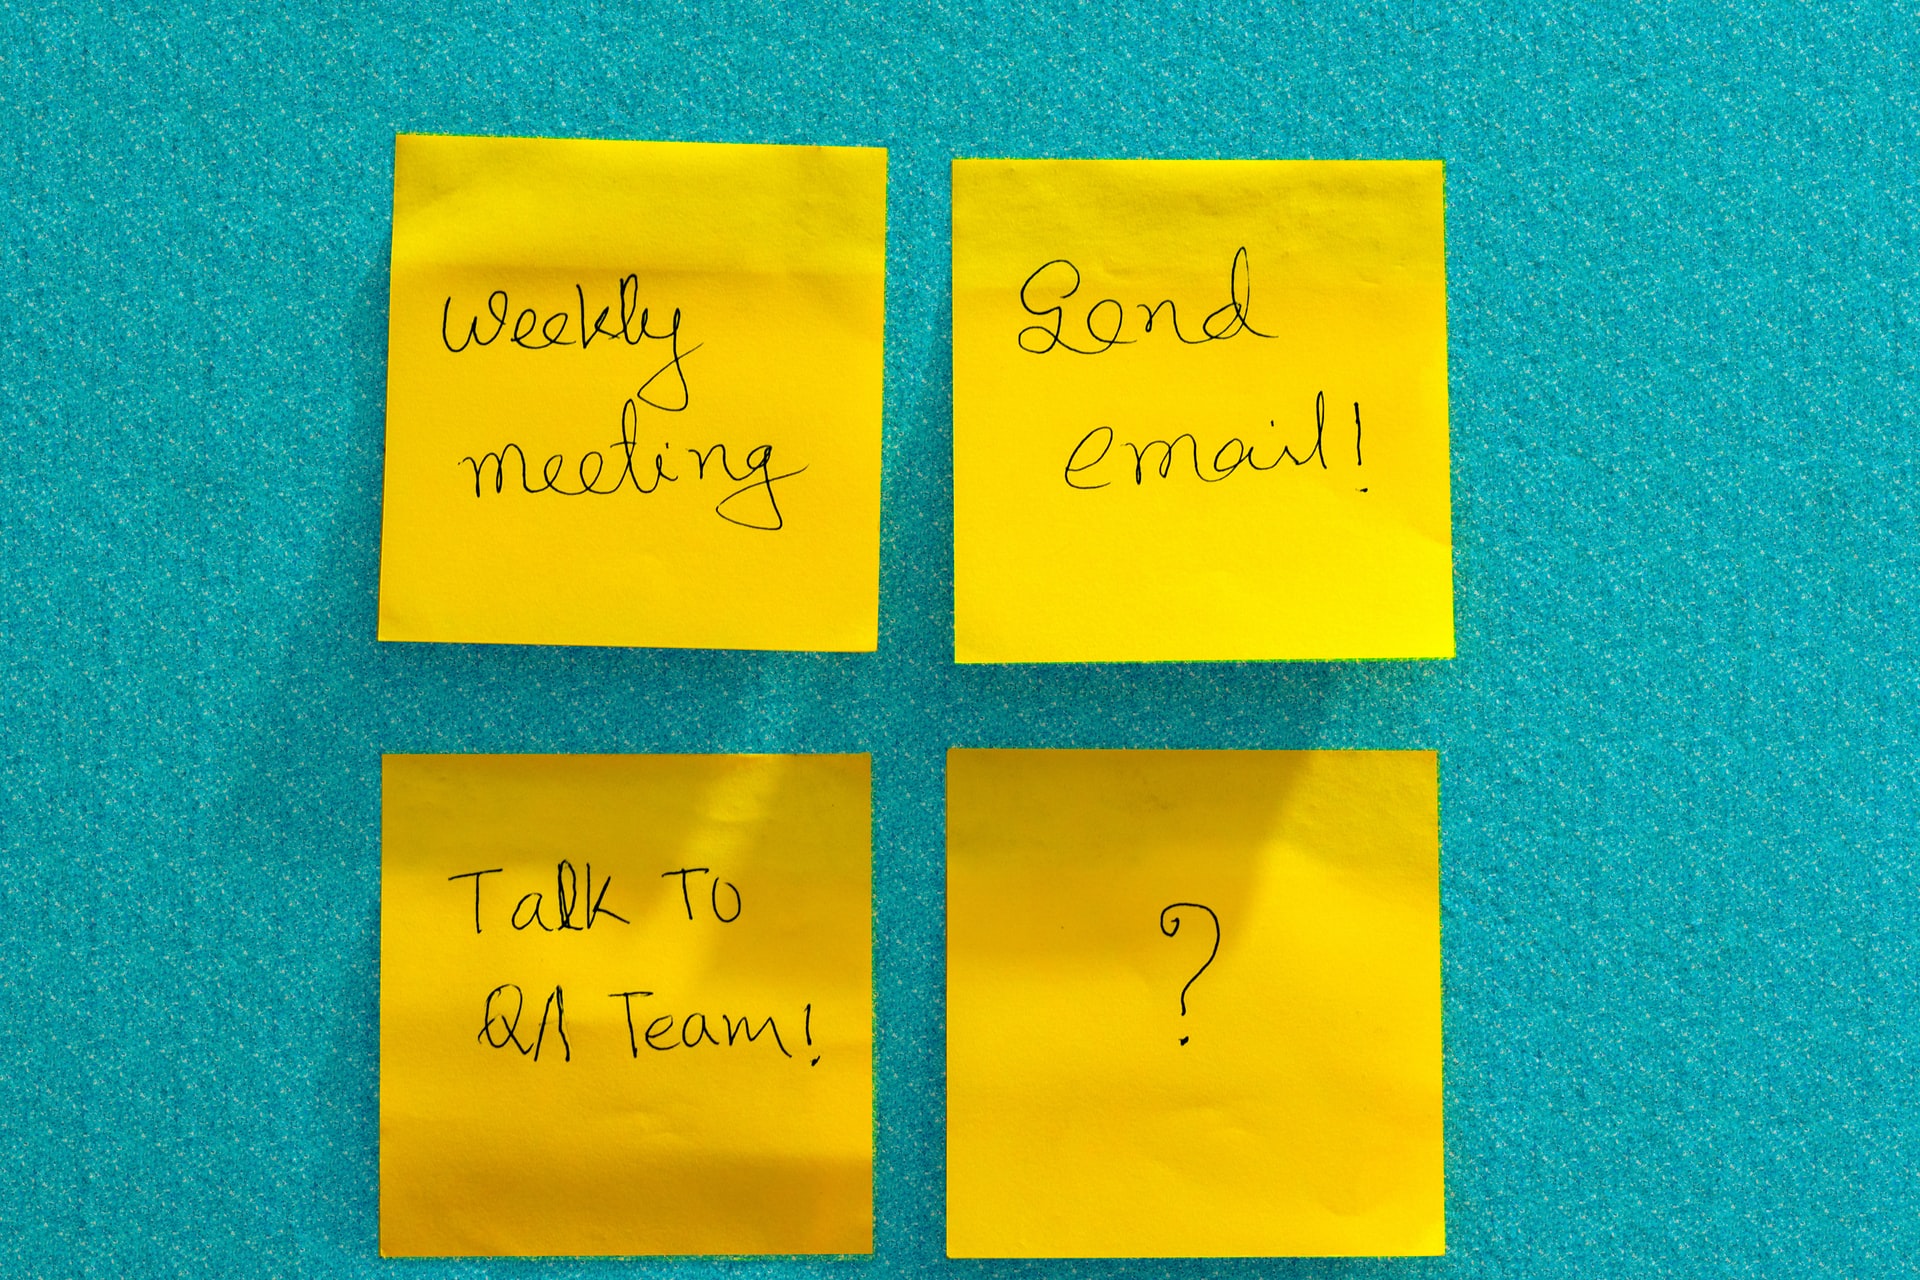 Weekly
meeting
Send
email!
Talk To
QA Team!
?